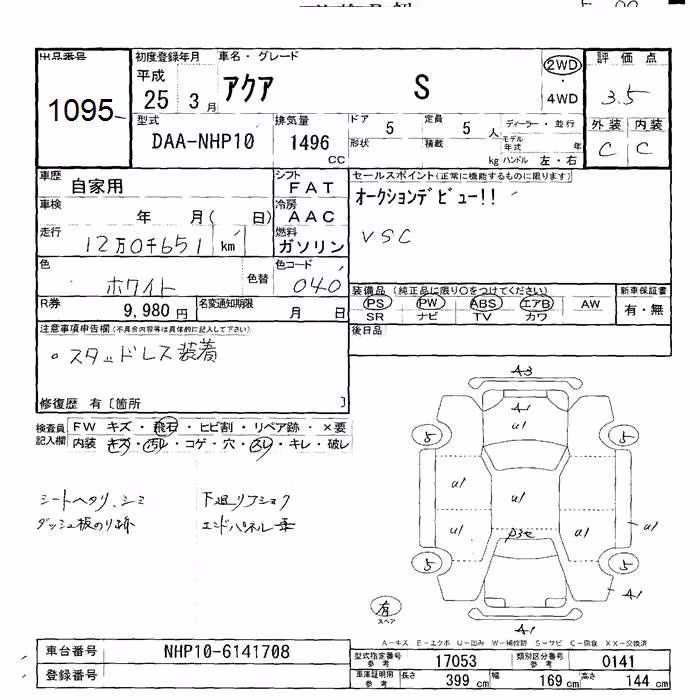 出品番号 初度登録年月 車名・グレード 評価点
1095 平成 25 3月 アクア S 2WD ・ 4WD 3.5
型式 排気量 ドア 5 定員 5人 ディーラー・並行 外装 内装
DAA-NHP10 1496 cc 形状 積載 kg モデル年式 年 ハンドル 左・右 C C
車歴 自家用 シフト FAT セールスポイント(正常に機能するものに限ります)
車検 年 月( 日) 冷房 AAC オークションデビュー!!
走行 12万0千651 km 燃料 ガソリン VSC
色 ホワイト 色替 色コード 040
装備品 (純正品に限り○をつけてください) 新車保証書
R券 9,980円 名変通知期限 月 日 PS PW ABS エアB AW 有・無
SR ナビ TV カワ
注意事項申告欄(不具合内容等は具体的に記入して下さい) 後日品
。スタッドレス装着
修復歴 有〔箇所 〕
検査員記入欄 FW キズ・飛石・ヒビ割・リペア跡・×要
内装 キズ・汚レ・コゲ・穴・スレ・キレ・破レ
シートヘタリ、シミ 下廻リフショク
ダッシュ板のり跡 エンドパネル
A3
A1
U1
5 5
U1 U1 U1
U1 U1 U1
5 5
A1
有
スペア
A1
A-キズ E-エクボ U-凹み W-補修跡 S-サビ C-腐食 XX-交換済
車台番号 NHP10-6141708 型式指定番号 参考 17053 類別区分番号 参考 0141
登録番号 車庫証明用 参考 長さ 399 cm 幅 169 cm 高さ 144 cm